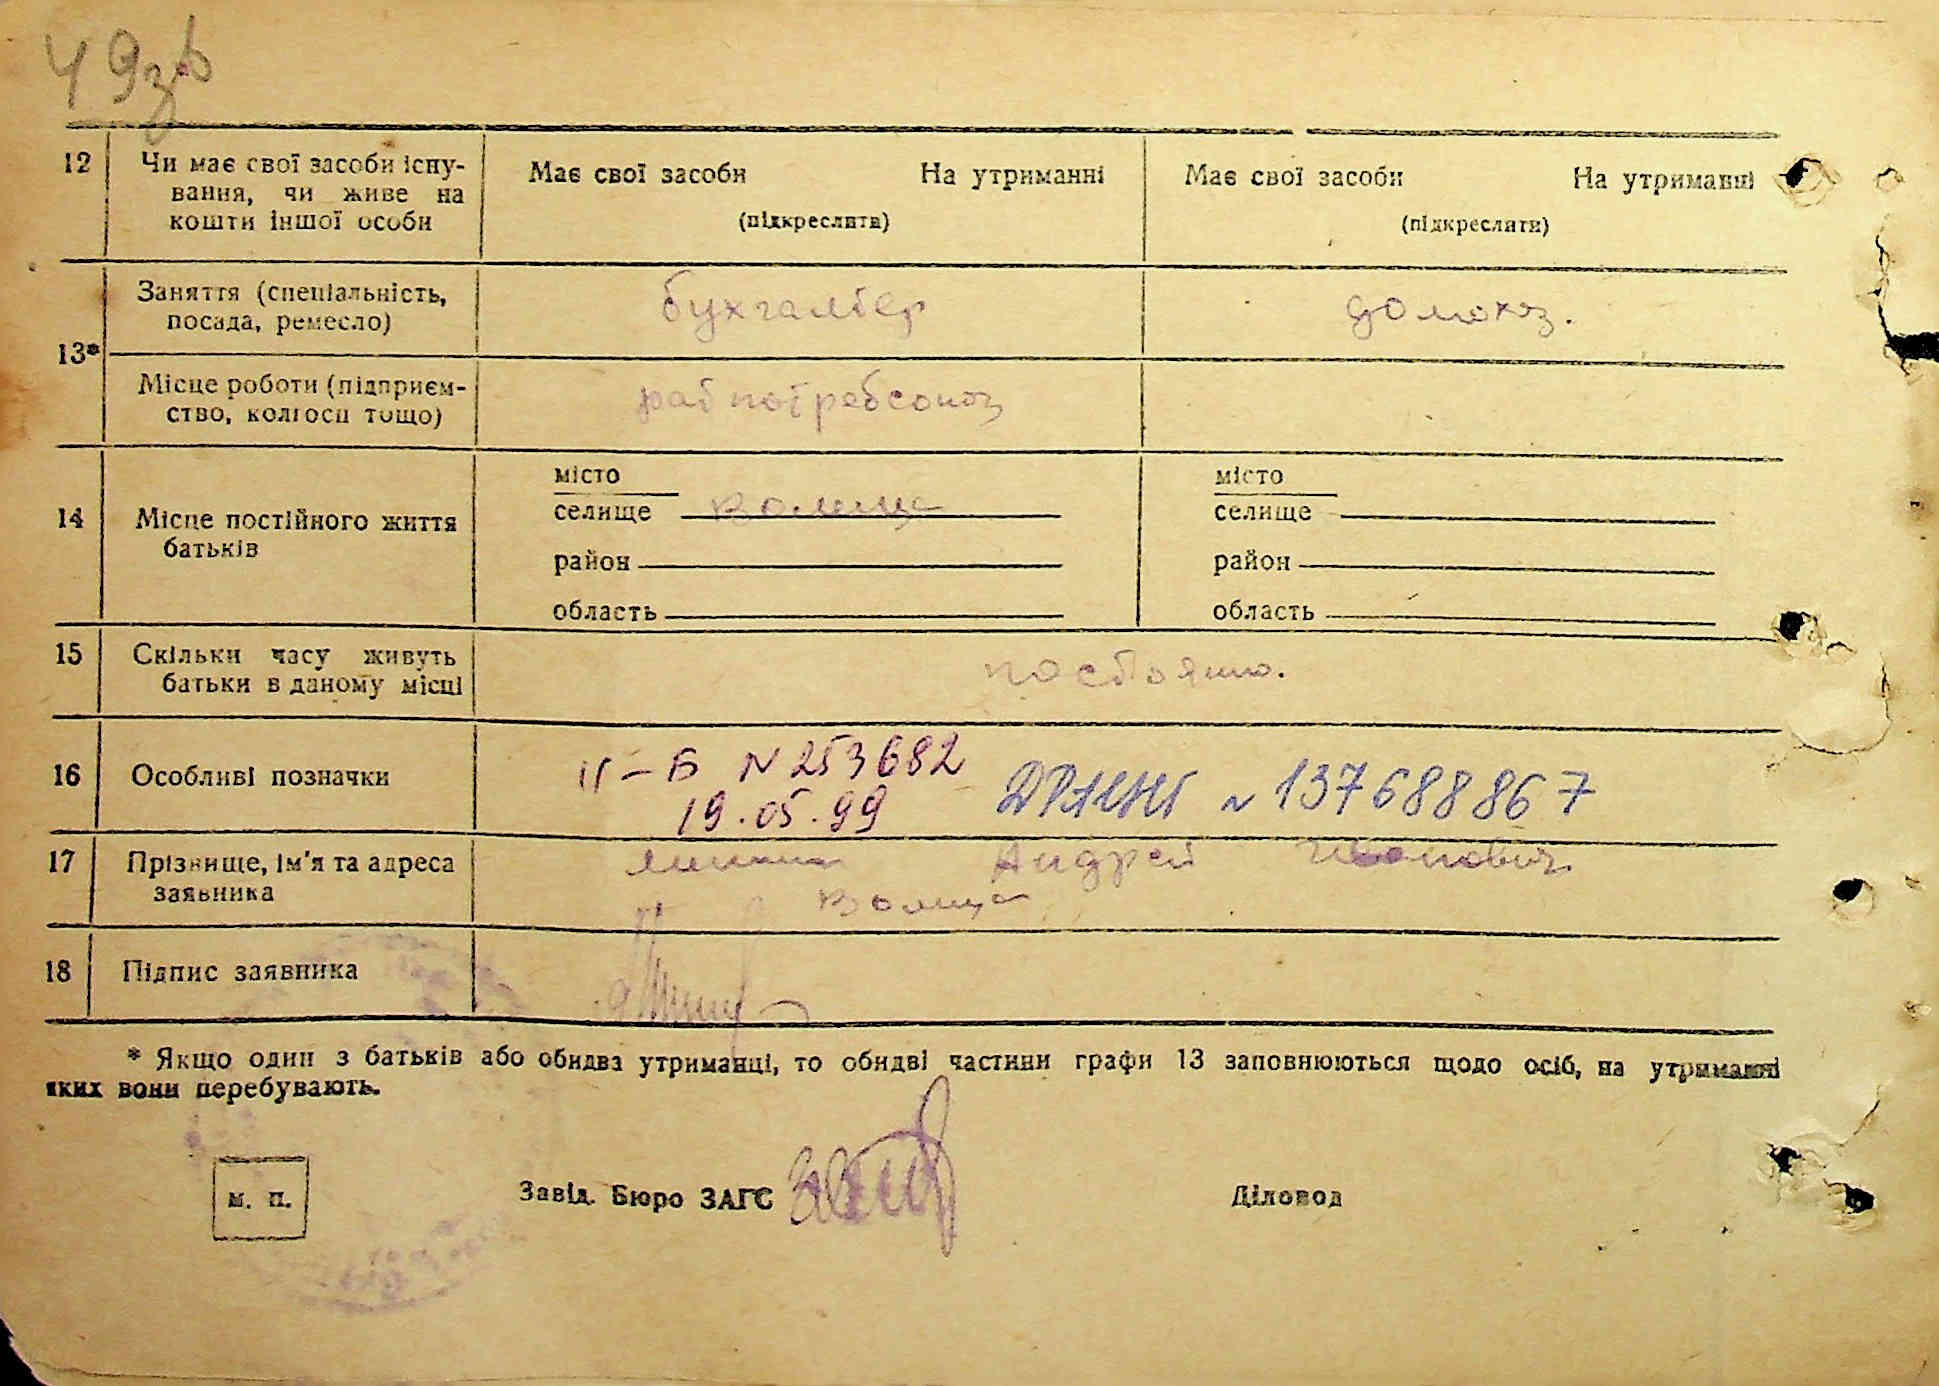 49зв
12 Чи має свої засоби існу-
вання, чи живе на
кошти іншої особи
Має свої засоби На утриманні
(підкреслити)
Має свої засоби На утриманні
(підкреслити)
13*
Заняття (спеціальність,
посада, ремесло)
бухгалтер
домохоз.
Місце роботи (підприєм-
ство, колгосп тощо)
райпотребсоюз
14 Місце постійного життя
батьків
місто
селище Волица
район
область
місто
селище
район
область
15 Скільки часу живуть
батьки в даному місці
постоянно.
16 Особливі позначки
II-Б N 253682
19.05.99
ДРАЦСГ N 137688867
17 Прізвище, ім'я та адреса
заявника
Андрей Иванович
Волица
18 Підпис заявника
* Якщо один з батьків або обидва утриманці, то обидві частини графи 13 заповнюються щодо осіб, на утриманні
яких вони перебувають.
м. п.
Завід. Бюро ЗАГС
Діловод